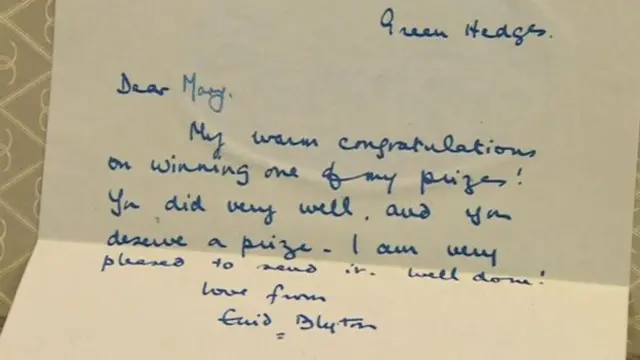 Green Hedges.
Dear Mary.
My warm congratulations
on winning one of my prizes!
You did very well, and you
deserve a prize - I am very
pleased to send it. Well done!
Love from
Enid Blyton